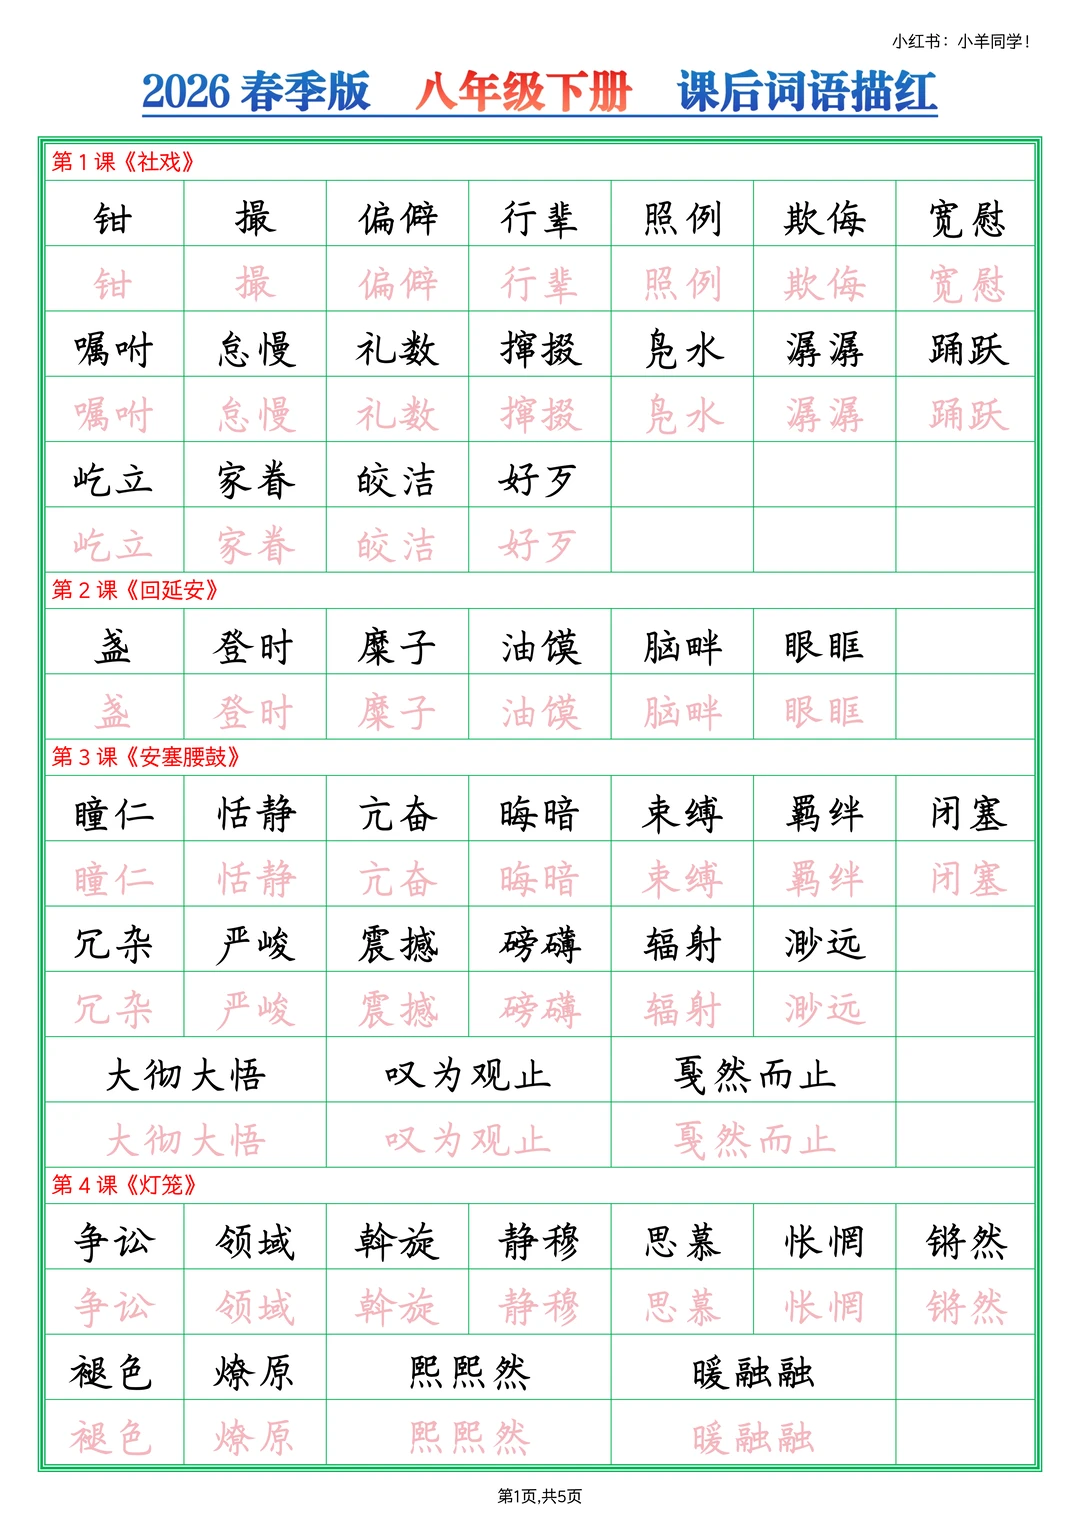 小红书：小羊同学！
2026 春季版 八年级下册 课后词语描红
第 1 课《社戏》
钳 撮 偏僻 行辈 照例 欺侮 宽慰
钳 撮 偏僻 行辈 照例 欺侮 宽慰
嘱咐 怠慢 礼数 撺掇 凫水 潺潺 踊跃
嘱咐 怠慢 礼数 撺掇 凫水 潺潺 踊跃
屹立 家眷 皎洁 好歹
屹立 家眷 皎洁 好歹
第 2 课《回延安》
盏 登时 糜子 油馍 脑畔 眼眶
盏 登时 糜子 油馍 脑畔 眼眶
第 3 课《安塞腰鼓》
瞳仁 恬静 亢奋 晦暗 束缚 羁绊 闭塞
瞳仁 恬静 亢奋 晦暗 束缚 羁绊 闭塞
冗杂 严峻 震撼 磅礴 辐射 渺远
冗杂 严峻 震撼 磅礴 辐射 渺远
大彻大悟 叹为观止 戛然而止
大彻大悟 叹为观止 戛然而止
第 4 课《灯笼》
争讼 领域 斡旋 静穆 思慕 怅惘 锵然
争讼 领域 斡旋 静穆 思慕 怅惘 锵然
褪色 燎原 熙熙然 暖融融
褪色 燎原 熙熙然 暖融融
第1页,共5页